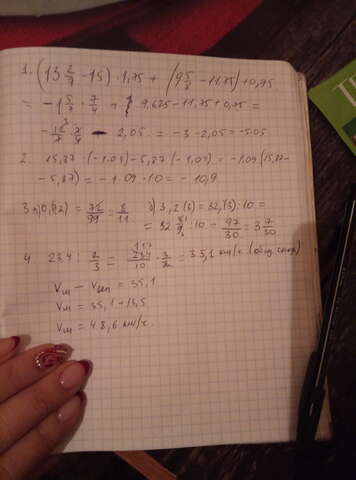 1. (13 2/7 - 15) · 1,75 + (9 5/8 - 11,75) + 0,75
= -1 5/7 · 7/4 + 9,625 - 11,75 + 0,75 =
- 12/7 · 7/4 - 2,05 = -3 - 2,05 = -5.05
2. 15,87 : (-1.09) - 5,87 · (-1.09) = -1.09 (15,87 -
- 5,87) = -1.09 · 10 = -10,9
3 a) 0,(72) = 72/99 = 8/11 б) 3,2(3) = 32,(3) : 10 =
= 32 1/3 : 10 = 97/30 = 3 7/30
4 23.4 : 2/3 = 234/10 · 3/2 = 35,1 км/ч (общ. скор)
Vм - Vвел = 35,1
Vм = 35,1 + 13,5
Vм = 48,6 км/ч